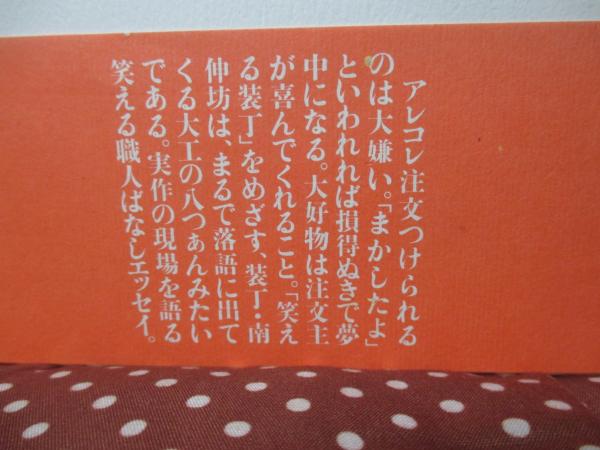 アレコレ注文つけられる
のは大嫌い。「まかしたよ」
といわれれば損得ぬきで夢
中になる。大好物は注文主
が喜んでくれること。「笑え
る装丁」をめざす、装丁・南
伸坊は、まるで落語に出て
くる大工の八つぁんみたい
である。実作の現場を語る
笑える職人ばなしエッセイ。